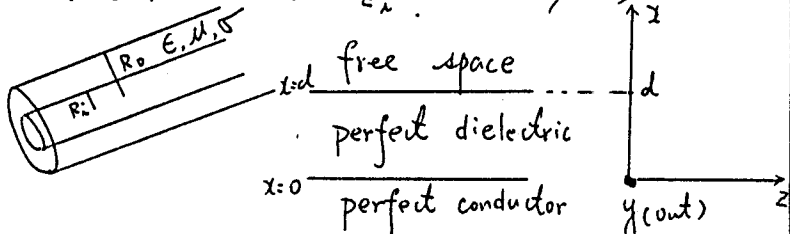 R₀ ε, μ, σ
Rᵢ
x=d
free space
perfect dielectric
x=0
perfect conductor
x
d
z
y(out)